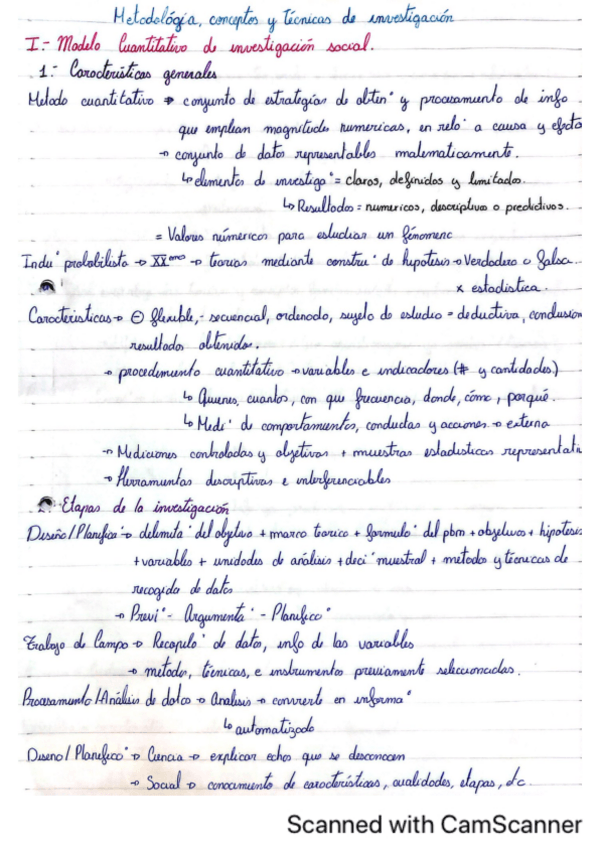 Metodológia, conceptos y técnicas de investigación
I.- Modelo Cuantitativo de investigación social.
1.- Características generales
Metodo cuantitativo → conjunto de estrategias de obten° y procesamiento de info
que emplean magnitudes numericas, en relo° a causa y efecto
→ conjunto de datos representables matematicamente.
↳ elementos de investiga° = claros, definidos y limitados.
↳ Resultados = numericos, descriptivos o predictivos.
= Valores númericos para estudiar un fénomeno
Indu° probabilista → XX → teorias mediante constru° de hipotesis → Verdadera o falsa.
x estadistica.
Caracteristicas → ⊖ flexible, - secuencial, ordenado, sujeto de estudio = deductiva, conclusion
resultados obtenidos.
→ procedimiento cuantitativo → variables e indicadores (# y cantidades)
↳ Quienes, cuantos, con que frecuencia, donde, cómo, porqué.
↳ Medi° de comportamientos, conductas y acciones → externa
→ Mediciones controladas y objetivas + muestras estadisticas representati
→ Herramientas descriptivas e interferenciables
Etapas de la investigación
Diseño/Planifica° → delimita° del objetivo + marco teorico + formulo° del pbm + objetivos + hipotesis
+ variables + unidades de análisis + deci° muestral + metodos y técnicas de
recogida de datos
→ Previ° - Argumenta° - Planifica°
Trabajo de Campo → Recopila° de datos, info de las variables
→ metodos, técnicas, e instrumentos previamente seleccionadas.
Procesamiento/Análisis de datos → Analisis → convierte en informa°
↳ automatizado
Diseno/Planifica° → Ciencia → explicar echos que se desconocen
→ Social → conocimiento de características, cualidades, etapas, etc.
Scanned with CamScanner